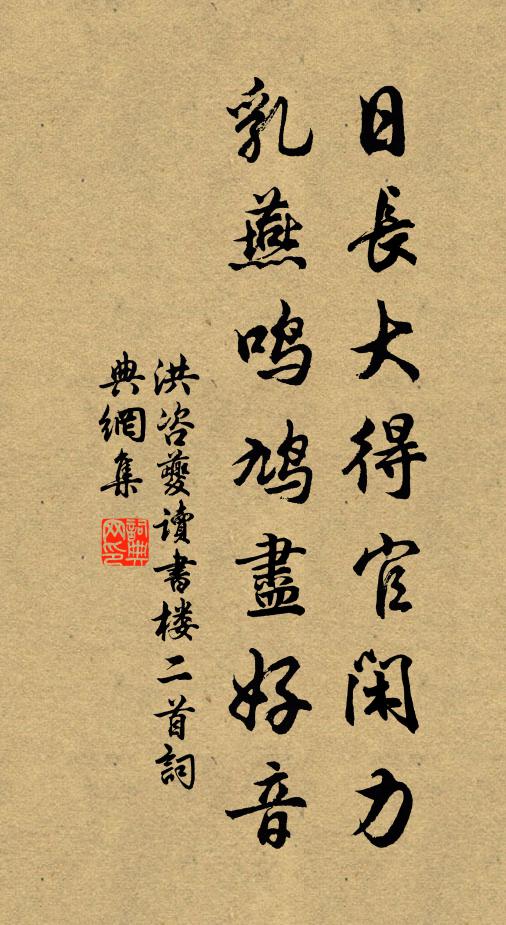 日長大得官閑力
乳燕鳴鳩盡好音
洪咨夔讀書楼二首詞
典網集
詞典网印